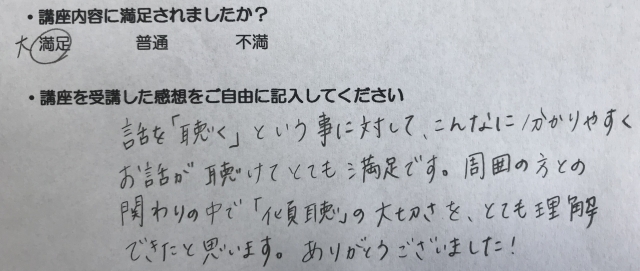 ・講座内容に満足されましたか？
大満足 普通 不満
・講座を受講した感想をご自由に記入してください
話を「聴く」という事に対して、こんなに分かりやすく
お話が聴けてとても満足です。周囲の方との
関わりの中で「傾聴」の大切さを、とても理解
できたと思います。ありがとうございました！